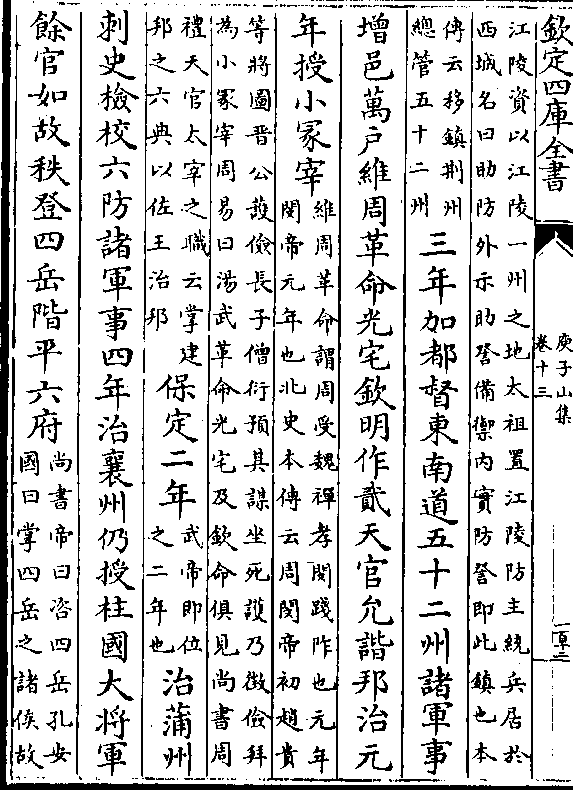 欽定四庫全書
庾子山集
卷十三
百二
江陵資以江陵一州之地太祖置江陵防主統兵居於
西城名曰助防外示助詧備禦内實防詧即此鎮也本
傳云移鎮荆州
總管五十二州
三年加都督東南道五十二州諸軍事
增邑萬户維周革命光宅欽明作貳天官允諧邦治元
年授小冢宰
維周革命謂周受魏禪孝閔踐阼也元年
閔帝元年也北史本傳云周閔帝初趙貴
等將圖晉公護儉長子僧衍預其謀坐死護乃徵儉拜
為小冢宰周易曰湯武革命光宅及欽命俱見尚書周
禮天官太宰之職云掌建
邦之六典以佐王治邦
保定二年
武帝即位
之二年也
治蒲州
刺史檢校六防諸軍事四年治襄州仍授柱國大將軍
餘官如故秩登四岳階平六府
尚書帝曰咨四岳孔安
國曰掌四岳之諸侯故